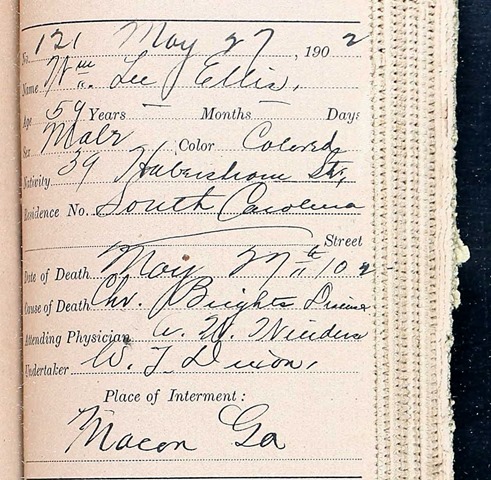 No. 121 May 27, 1902
Name Wm. Lee Ellis,
Age 59 Years — Months — Days
Sex Male Color Colored
Nativity 39 Habersham Str,
Residence No. South Carolina
Street
Date of Death May 27th 102
Cause of Death Chr. Brights Disease
Attending Physician W.
Undertaker W. J. Dixon,
Place of Interment:
Macon Ga